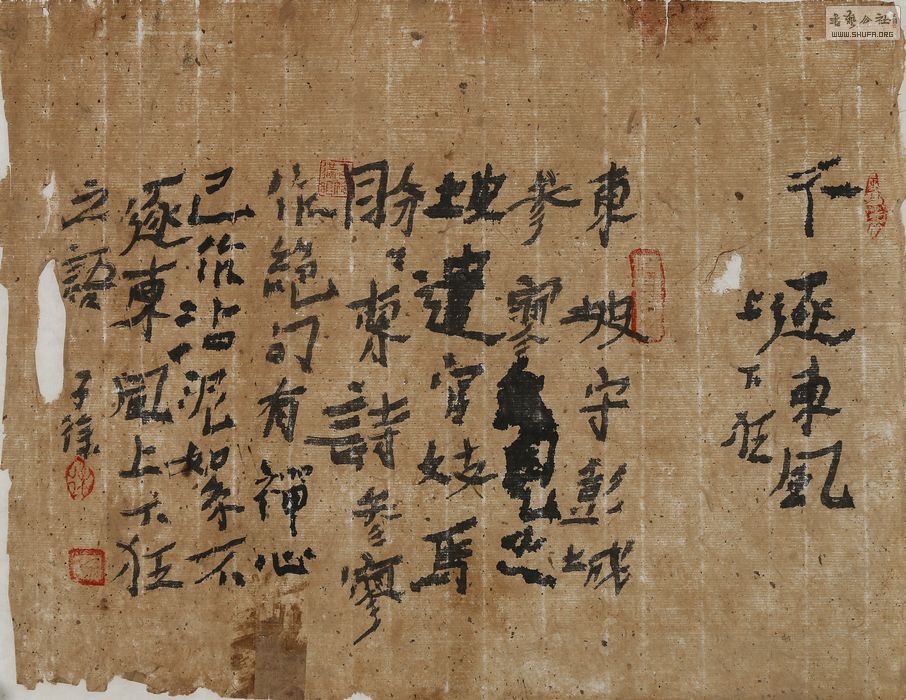 不逐東風
上下狂
東坡守彭城
參寥見之
坡遣官妓馬
盼々索詩參寥
作絕句有禪心
已作沾泥絮不
逐東風上下狂
之語
子徐
WWW.SHUFA.ORG